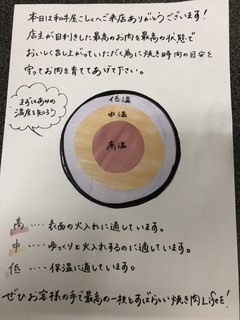 本日は和牛屋こしょへご来店ありがとうございます!
店主が目利きした最高のお肉を最高の状態で
おいしく召し上がっていただく為に焼き時間の目安を
守ってお肉を育ててあげて下さい。
まずはあみの
温度を知ろう
低温
中温
高温
高‥‥表面の火入れに適しています。
中‥‥ゆっくりと火入れするのに適しています。
低‥‥保温に適しています。
ぜひお客様の手で最高の一枚とすばらしい焼き肉Lifeを!